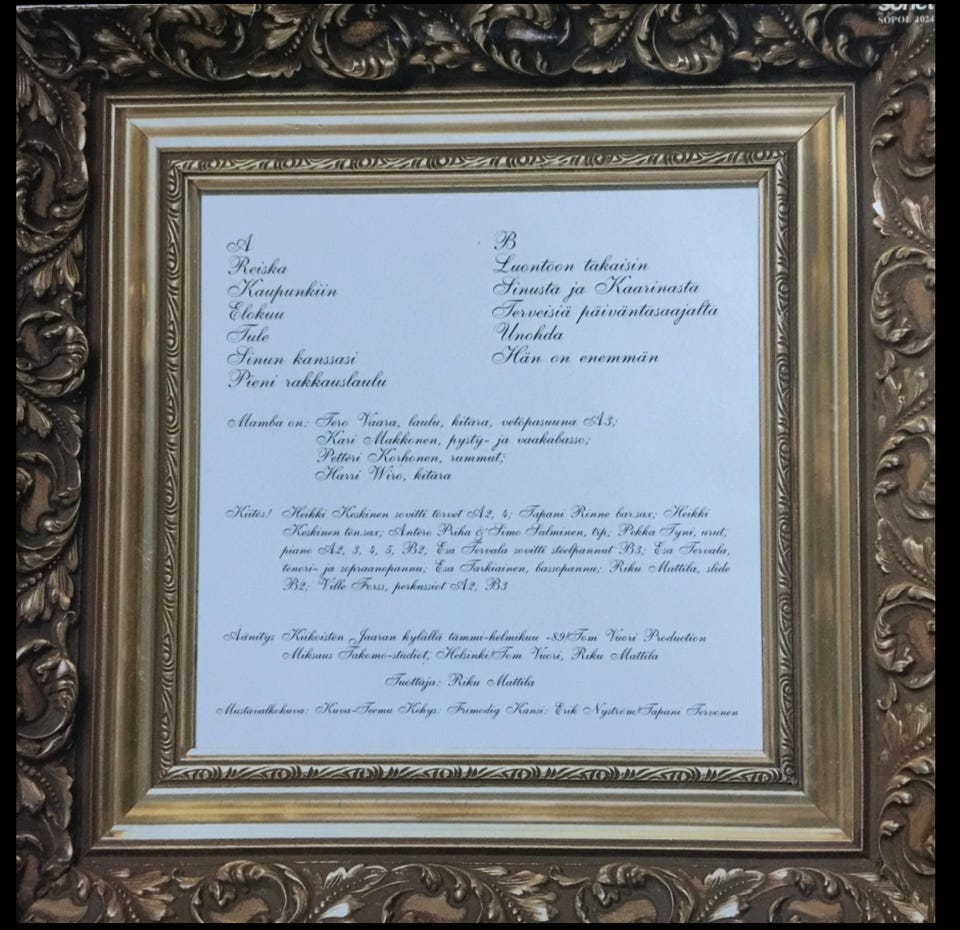 sonet
SOPOL 1024
A
Reiska
Kaupunkiin
Elokuu
Tule
Sinun kanssasi
Pieni rakkauslaulu
B
Luontoon takaisin
Sinusta ja Kaarinasta
Terveisiä päiväntasaajalta
Unohda
Hän on enemmän
Mamba on: Tero Vaara, laulu, kitara, vetopasuuna A3;
Kari Makkonen, pysty- ja vaakabasso;
Petteri Korhonen, rummut;
Harri Wiro, kitara
Kiitos! Heikki Keskinen sovitti torvet A2, 4; Tapani Rinne bar.sax; Heikki
Keskinen ten.sax; Antero Priha & Simo Salminen, trp; Pekka Tyni, urut,
piano A2, 3, 4, 5, B2; Esa Tervala sovitti steelpannut B3; Esa Tervala,
tenori- ja sopraanopannu; Esa Tarkiainen, bassopannu; Riku Mattila, slide
B2; Ville Forss, perkussiot A2, B3
Äänitys Kiikoisten Jaaran kylällä tammi-helmikuu -89/Tom Vuori Production
Miksaus Takomo-studiot, Helsinki/Tom Vuori, Riku Mattila
Tuottaja: Riku Mattila
Mustavalkokuva: Kuva-Teemu Kehys: Fremodig Kansi: Erik Nyström/Tapani Tervonen